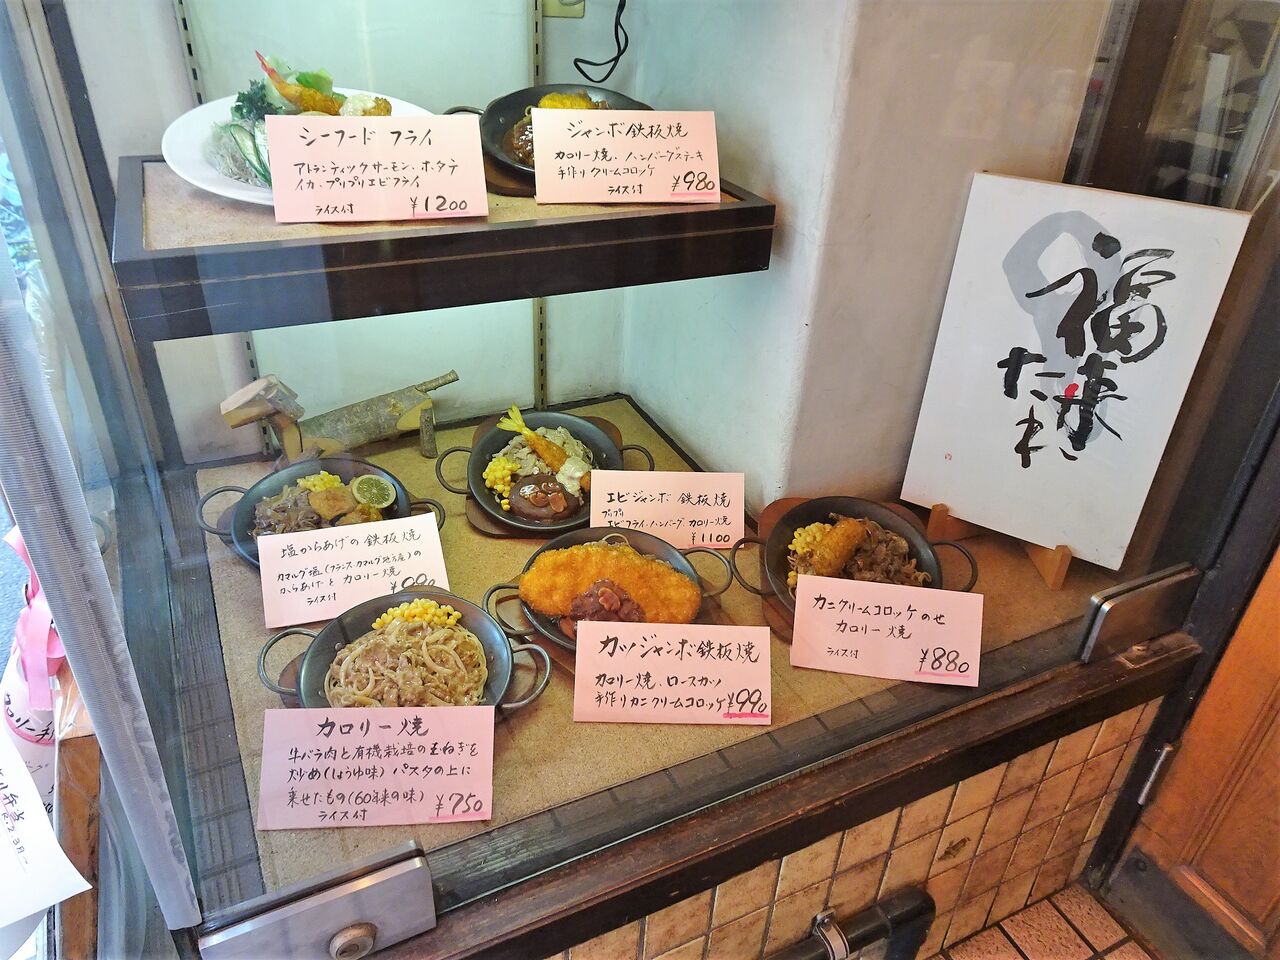 シーフード フライ
アトランティックサーモン、ホタテ
イカ、プリプリエビフライ
ライス付 ¥1200
ジャンボ鉄板焼
カロリー焼、ハンバーグステーキ
手作りクリームコロッケ
ライス付 ¥980
福
来
たれ
塩からあげの鉄板焼
カマルグ塩(フランスカマルグ地方産)の
からあげとカロリー焼
ライス付 ¥990
エビジャンボ鉄板焼
プリプリ
エビフライ、ハンバーグ、カロリー焼
¥1100
カツジャンボ鉄板焼
カロリー焼、ロースカツ
手作りカニクリームコロッケ ¥990
カニクリームコロッケのせ
カロリー焼
ライス付 ¥880
カロリー焼
牛バラ肉と有機栽培の玉ねぎを
炒め(しょうゆ味)パスタの上に
乗せたもの(60年来の味)
ライス付 ¥750